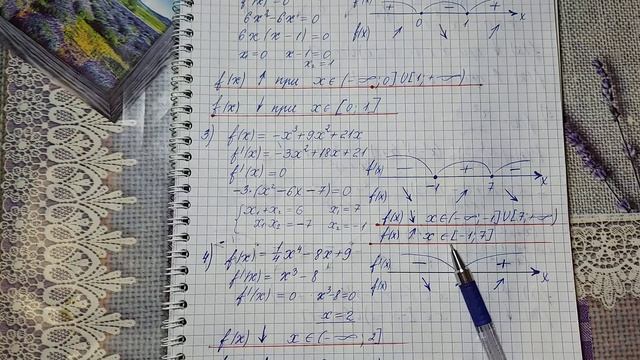 f'(x) = 0
6x² - 6x = 0
6x (x - 1) = 0
x₁ = 0 x - 1 = 0
x₂ = 1
+ - +
0 1 x
f(x) ↗ ↘ ↗
f(x) ↑ при x ∈ (-∞; 0] U [1; +∞)
f(x) ↓ при x ∈ [0; 1]
3) f(x) = -x³ + 9x² + 21x
f'(x) = -3x² + 18x + 21
f'(x) = 0
-3·(x² - 6x - 7) = 0
x₁ + x₂ = 6 x₁ = 7
x₁x₂ = -7 x₂ = -1
f'(x) - + -
-1 7 x
f(x) ↘ ↗ ↘
f(x) ↓ x ∈ (-∞; -1] U [7; +∞)
f(x) ↑ x ∈ [-1; 7]
4) f(x) = 1/4 x⁴ - 8x + 9
f'(x) = x³ - 8
f'(x) = 0 x³ - 8 = 0
x = 2
f'(x) - +
x
f(x) ↘ ↗
f(x) ↓ x ∈ (-∞; 2]